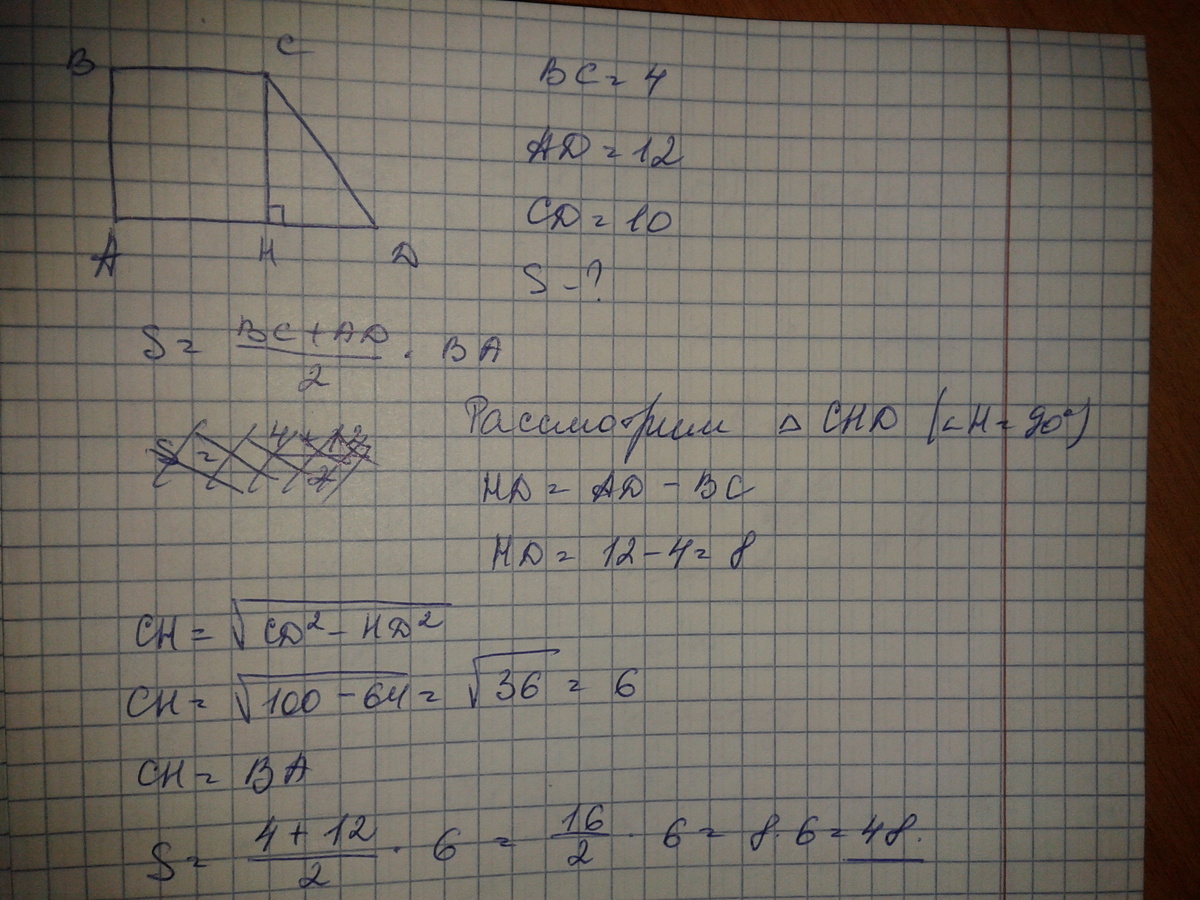 B C
A H D
BC = 4
AD = 12
CD = 10
S - ?
S = (BC + AD)/2 · BA
Рассмотрим △ CHD (∠H = 90°)
HD = AD - BC
HD = 12 - 4 = 8
CH = √(CD² - HD²)
CH = √(100 - 64) = √36 = 6
CH = BA
S = (4 + 12)/2 · 6 = 16/2 · 6 = 8 · 6 = 48.